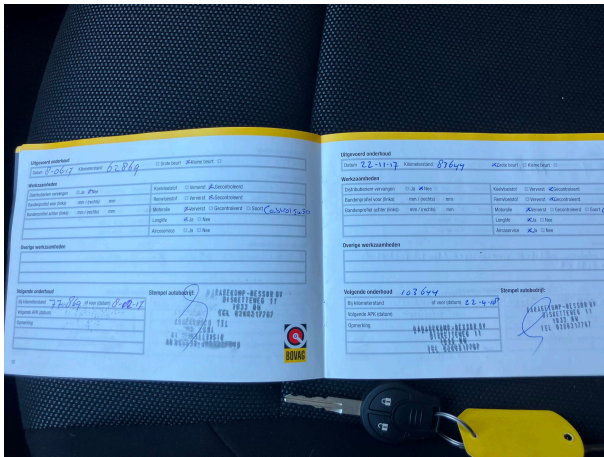 Uitgevoerd onderhoud
Datum 8-06-17 Kilometerstand 62869 Grote beurt Kleine beurt
Werkzaamheden
Distributieriem vervangen Ja Nee
Bandenprofiel voor (links) mm / (rechts) mm
Bandenprofiel achter (links) mm / (rechts) mm
Koelvloeistof Ververst Gecontroleerd
Remvloeistof Ververst Gecontroleerd
Motorolie Ververst Gecontroleerd Soort
Longlife Ja Nee
Aircoservice Ja Nee
Overige werkzaamheden
Volgende onderhoud
Bij kilometerstand 77.869 of voor (datum)
Volgende APK (datum)
Opmerking
Stempel autobedrijf:
1033
TEL
BOVAG
Uitgevoerd onderhoud
Datum 22-11-17 Kilometerstand 83644 Grote beurt Kleine beurt
Werkzaamheden
Distributieriem vervangen Ja Nee
Bandenprofiel voor (links) mm / (rechts) mm
Bandenprofiel achter (links) mm / (rechts) mm
Koelvloeistof Ververst Gecontroleerd
Remvloeistof Ververst Gecontroleerd
Motorolie Ververst Gecontroleerd Soort
Longlife Ja Nee
Aircoservice Ja Nee
Overige werkzaamheden
Volgende onderhoud 103644
Bij kilometerstand of voor (datum) 22-4-18
Volgende APK (datum)
Opmerking
Stempel autobedrijf: